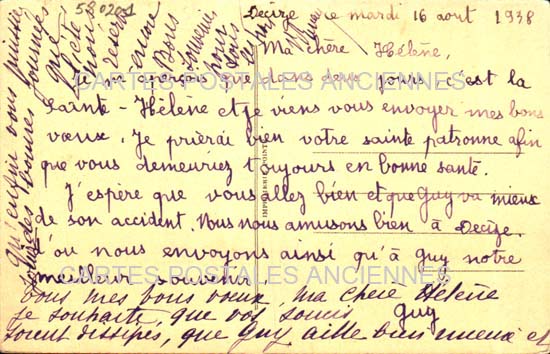 580201
Decize le mardi 16 aout 1938
Ma chère Hélène,
Je m'aperçois que dans deux jours c'est la
Sainte-Hélène et je viens vous envoyer mes bons
vœux. Je prierai bien votre sainte patronne afin
que vous demeuriez toujours en bonne santé.
J'espère que vous allez bien et que Guy va mieux
de son accident. Nous nous amusons bien à Decize.
d'où nous envoyons ainsi qu'à Guy notre
meilleur souvenir
Guy
Tous mes bons vœux, ma chère Hélène
je souhaite, que vos soucis
soient dissipés, que Guy aille bien mieux et
qu'enfin vous puissiez
des bonnes journées
que
l'été
nous
réserve
encore
Bons
souvenirs
pour
tous
IMPRIMERIE POINT
CARTES POSTALES ANCIENNES
CARTES POSTALES ANCIENNES